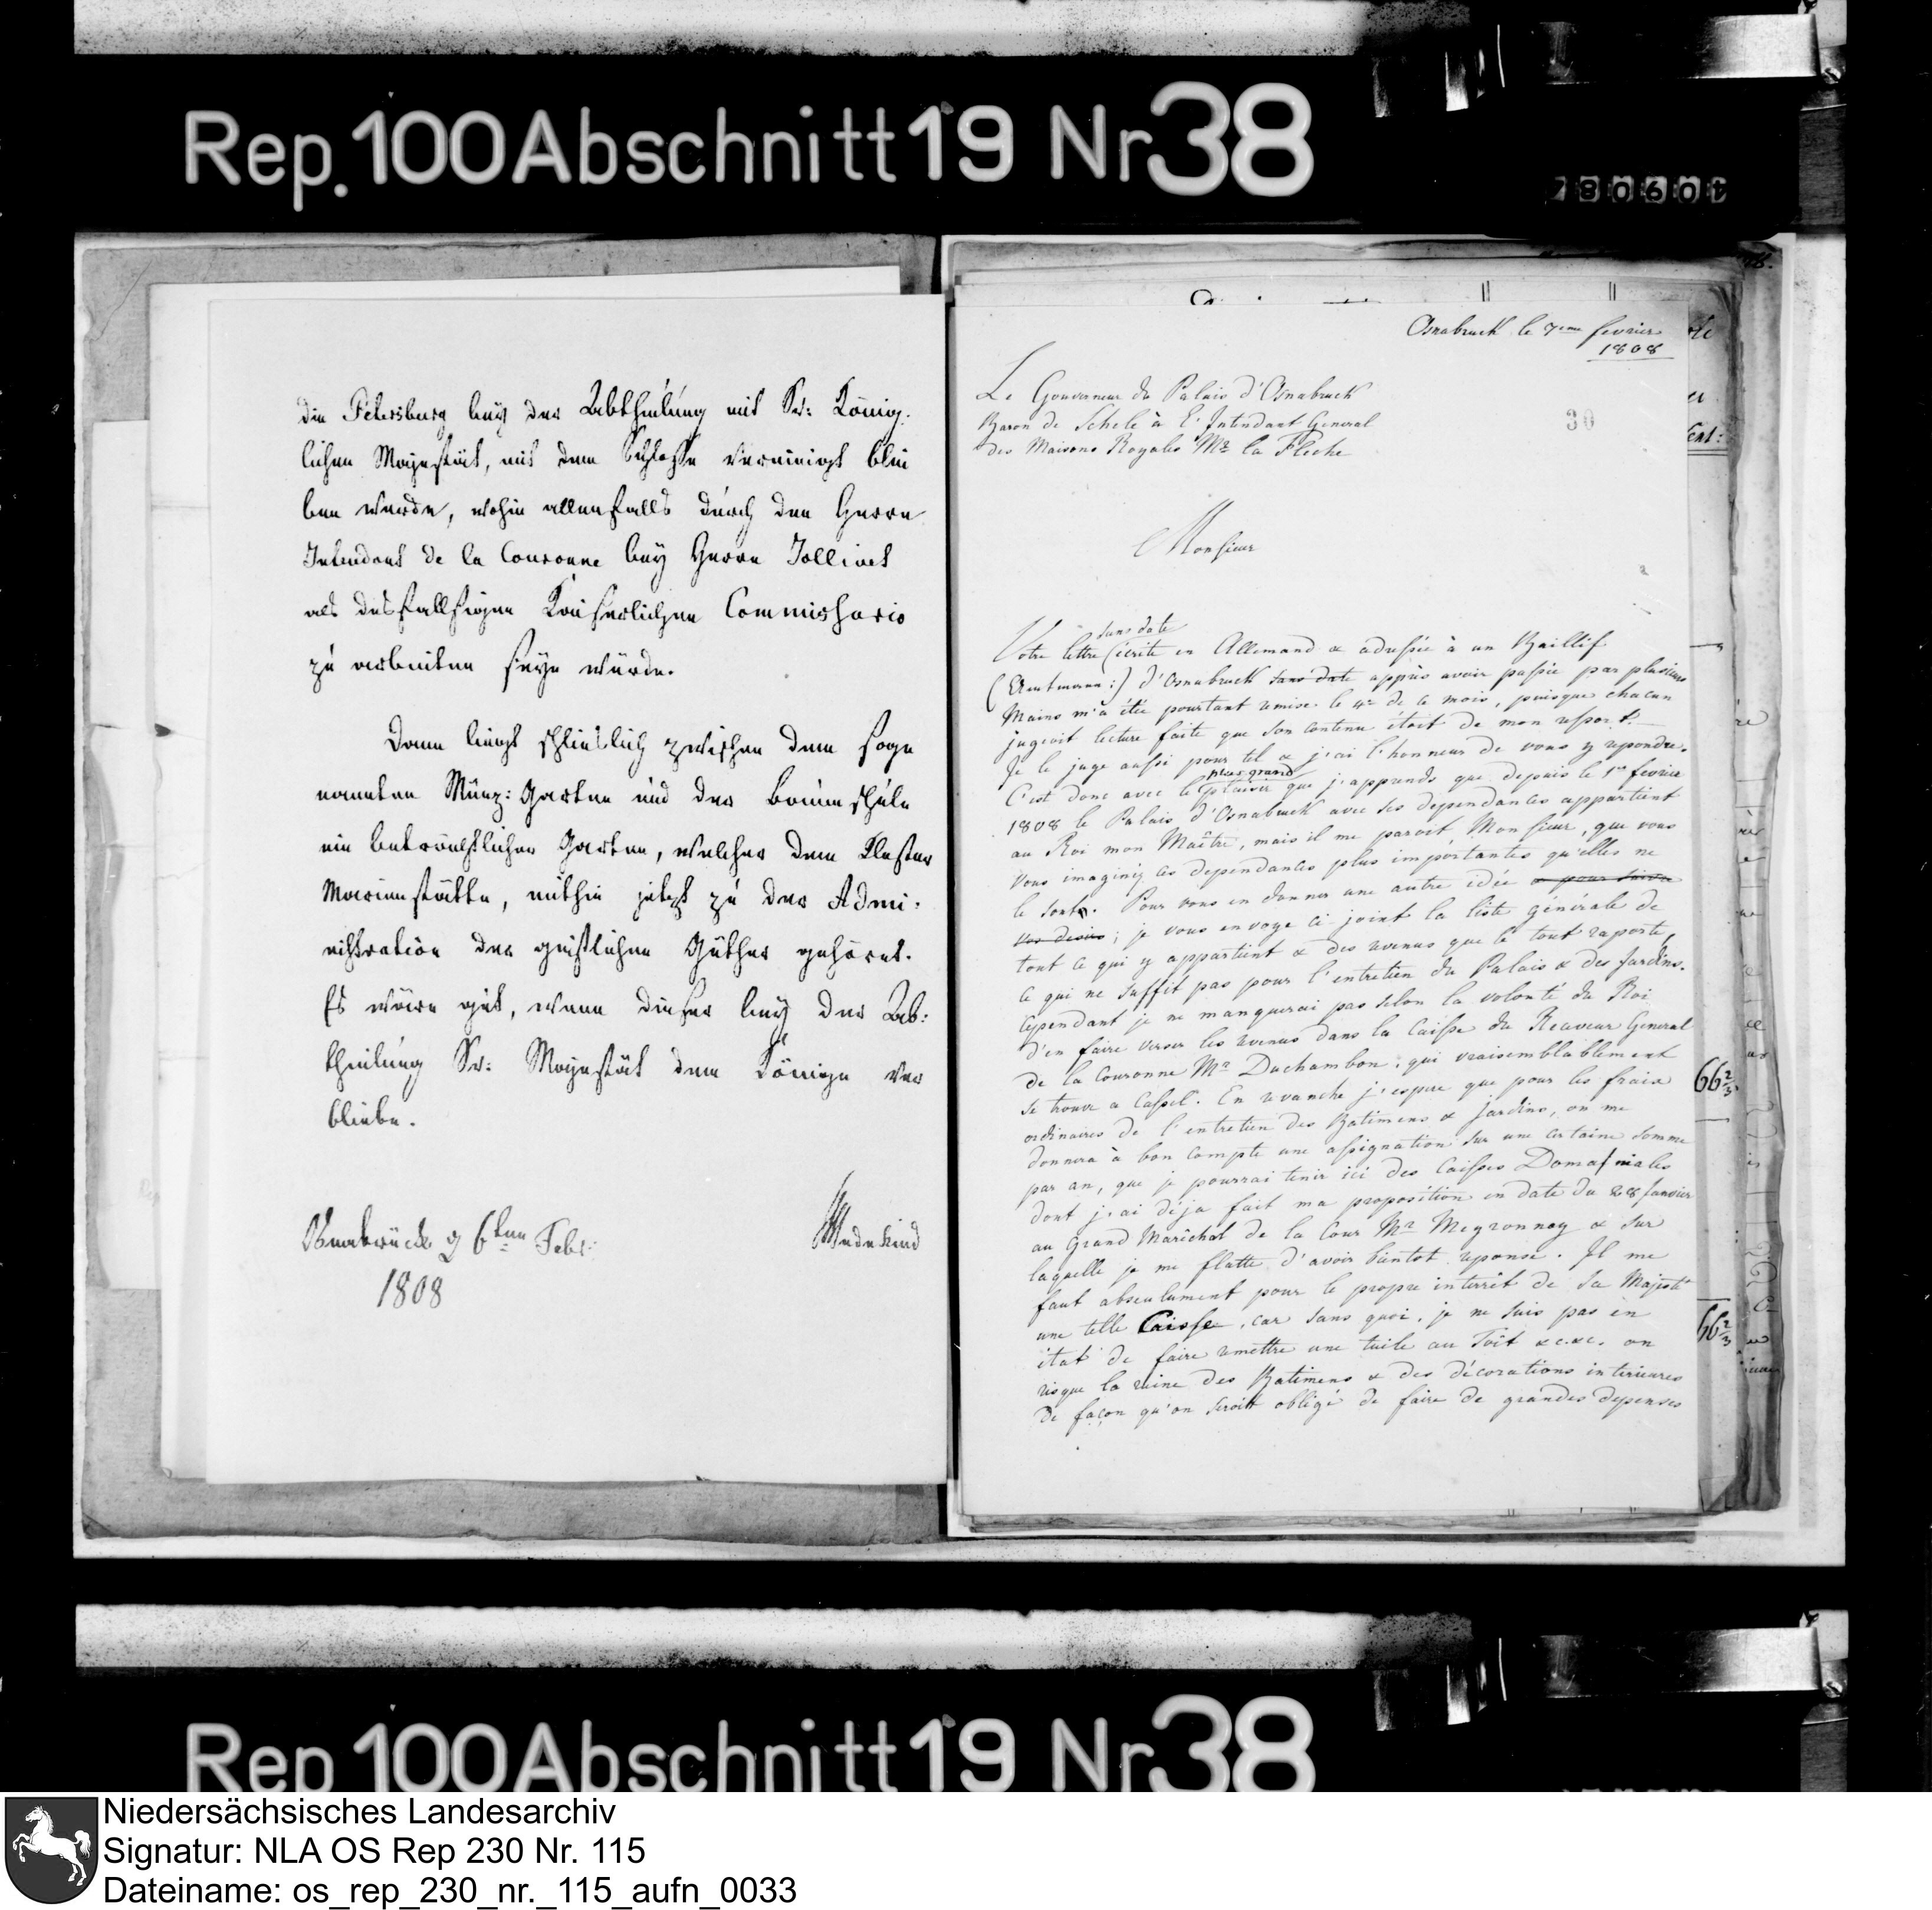 Rep. 100 Abschnitt 19 Nr 38
die Petersburg bey der Abtheilung mit Sr: König:
lichen Majestät, mit dem Schlosse vereinigt blei
ben werde, wohin allenfalls durch den Herrn
Intendant de la Couronne bey Herrn Jollivet
als desfallsigen Kaiserlichen Commissario
zu arbeiten seyn würde.
Dann liegt schlieslich zwischen dem soge
nannten Münz: Garten und der Baumschule
ein beträchtlicher Garten, welcher dem Kloster
Marienstätte, mithin jetzt zu der Admi:
nistration der geistlichen Güther gehöret.
Es wäre gut, wenn dieser bey der Ab:
theilung Sr: Majestät dem Könige ver
bliebe.
Osnabrück d 6ten Febr:
1808
Wedekind
Osnabruck le 7eme fevrier
1808
30
Le Gouverneur du Palais d'Osnabruck
Baron de Schele à L'Intendant General
des Maisons Royales Mr la Fleche
Monsieur
sans date
Votre lettre (écrite en Allemand & adressée à un Baillif
(Amtmann:) d'Osnabruck sans date apprès avoir passée par plusieurs
Mains m'a étée pourtant remise le 4e de ce mois, puisque chacun
jugeoit lecture faite que son contenu étoit de mon ressort.
Je le juge aussi pour tel & j'ai l'honneur de vous y repondre.
plus grand
C'est donc avec le plaisir que j'apprends que depuis le 1er fevrier
1808 le Palais d'Osnabruck avec ses dependances appartient
au Roi mon Maître, mais il me paroit, Monsieur, que vous
Vous imaginiez les dependances plus importantes qu'elles ne
le sont. Pour vous en donner une autre idée & pour suivre
vos desirs; je vous envoye ci joint la liste générale de
tout ce qui y appartient & des revenus que le tout raporte,
ce qui ne suffit pas pour l'entretien du Palais & des Jardins.
Cependant je ne manquerai pas selon la volonté du Roi
d'en faire verser les revenus dans la Caisse du Receveur General
de la Couronne Mr Duchambon, qui vraisemblablement
se trouve a Cassel. En revanche j'espere que pour les fraix
ordinaires de l'entretien des Batimens & Jardins, on me
donnera à bon compte une assignation sur une certaine somme
par an, que je pourrai tenir ici des Caisses Domainiales
dont j'ai déja fait ma proposition en date du 28 Janvier
au Grand Maréchal de la Cour Mr Meyronnoy & sur
laquelle je me flatte d'avoir bientot reponse. Il me
faut absoulument pour le propre interrêt de Sa Majesté
une telle Caisse, car sans quoi, je ne suis pas en
état de faire remettre une tuile au Toît &c.&c. on
risque la ruine des Batimens & des décorations interieures
de façon qu'on seroit obligé de faire de grandes depenses
66 2/3
66 2/3
Rep 100 Abschnitt 19 Nr 38
Niedersächsisches Landesarchiv
Signatur: NLA OS Rep 230 Nr. 115
Dateiname: os_rep_230_nr._115_aufn_0033